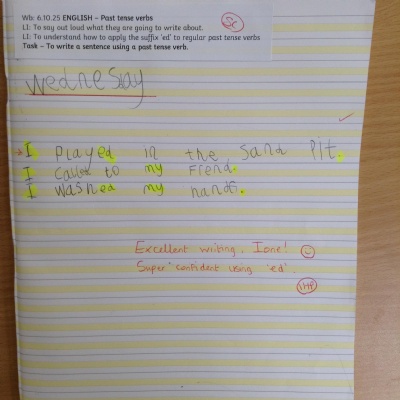 Wb: 6.10.25 ENGLISH – Past tense verbs
LI: To say out loud what they are going to write about.
LI: To understand how to apply the suffix 'ed' to regular past tense verbs
Task – To write a sentence using a past tense verb.
Sc
Wednesday
I played in the sand pit.
I called to my Frend.
I washed my hands.
Excellent writing, Ione!
Super confident using 'ed'.
1HP